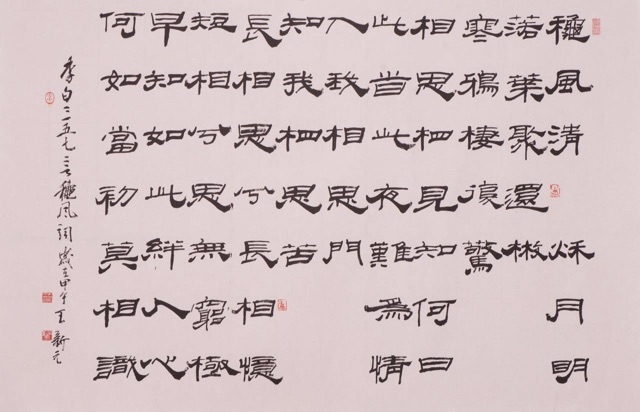 穐風清秌月明
落葉聚還散
寒鴉棲復驚
相思相見知何日
此旹此夜難為情
入我相思門
知我相思苦
長相思兮長相憶
短相思兮無窮極
早知如此絆人心
何如當初莫相識
李白三五七言穐風詞歲在甲午王新元